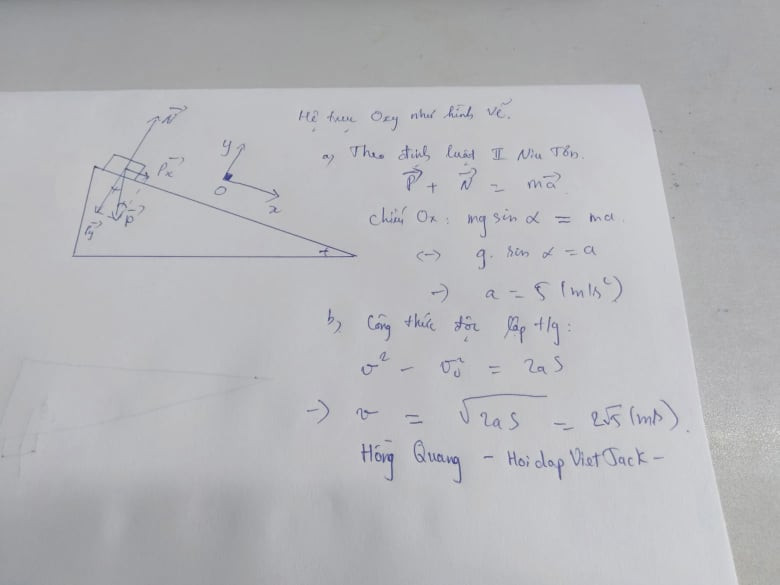 Hệ trục Oxy như hình vẽ.
a, Theo định luật II Niu Tơn.
P⃗ + N⃗ = ma⃗
chiếu Ox: mg sin α = ma.
<-> g. sin α = a
-> a = 5 (m/s²)
b, Công thức độc lập t/g:
v² - v₀² = 2aS
-> v = √2aS = 2√5 (m/s).
Hồng Quang - Hoidap VietJack -
N⃗
Px⃗
Py⃗
P⃗
y
O
x